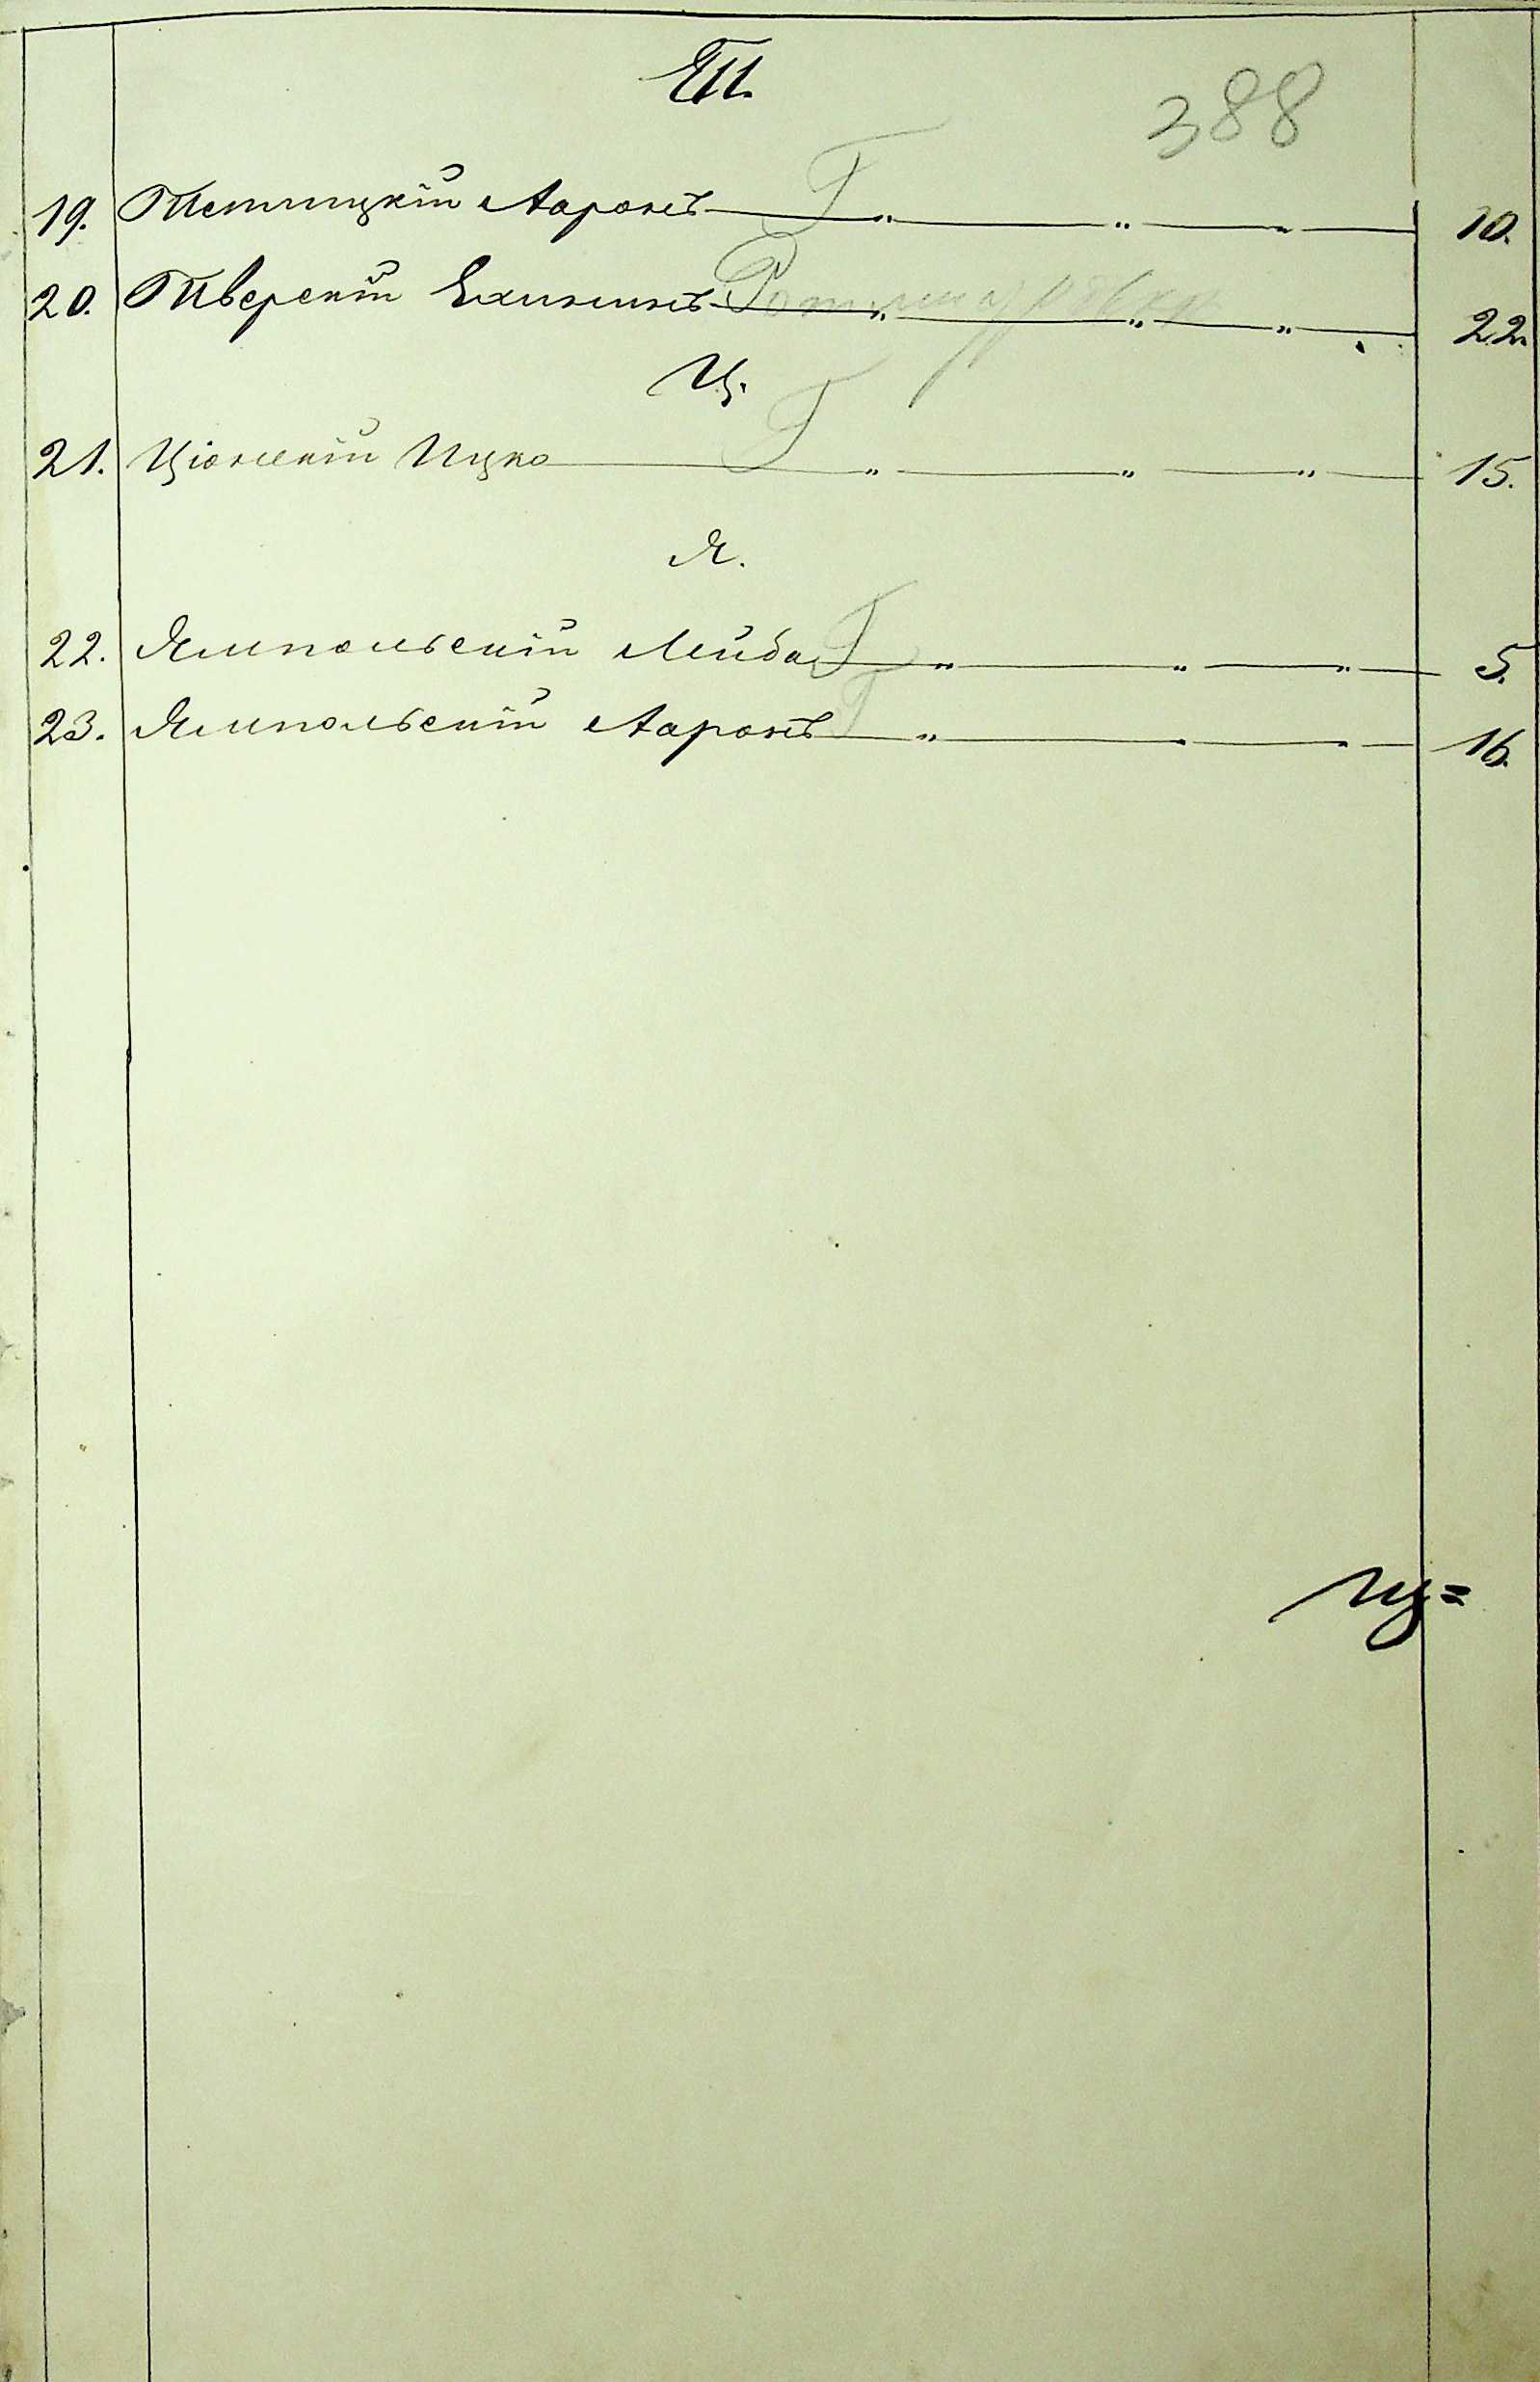 Т.
388
19. Тетицкій Ааронъ Г " " " 10.
20. Тверскій Ехижинъ " " " 22.
Ц.
21. Ціонскій Ицко Г " " " 15.
Я.
22. Ямпольскій Лейба Г " " " 5.
23. Ямпольскій Ааронъ Г " " " 16.